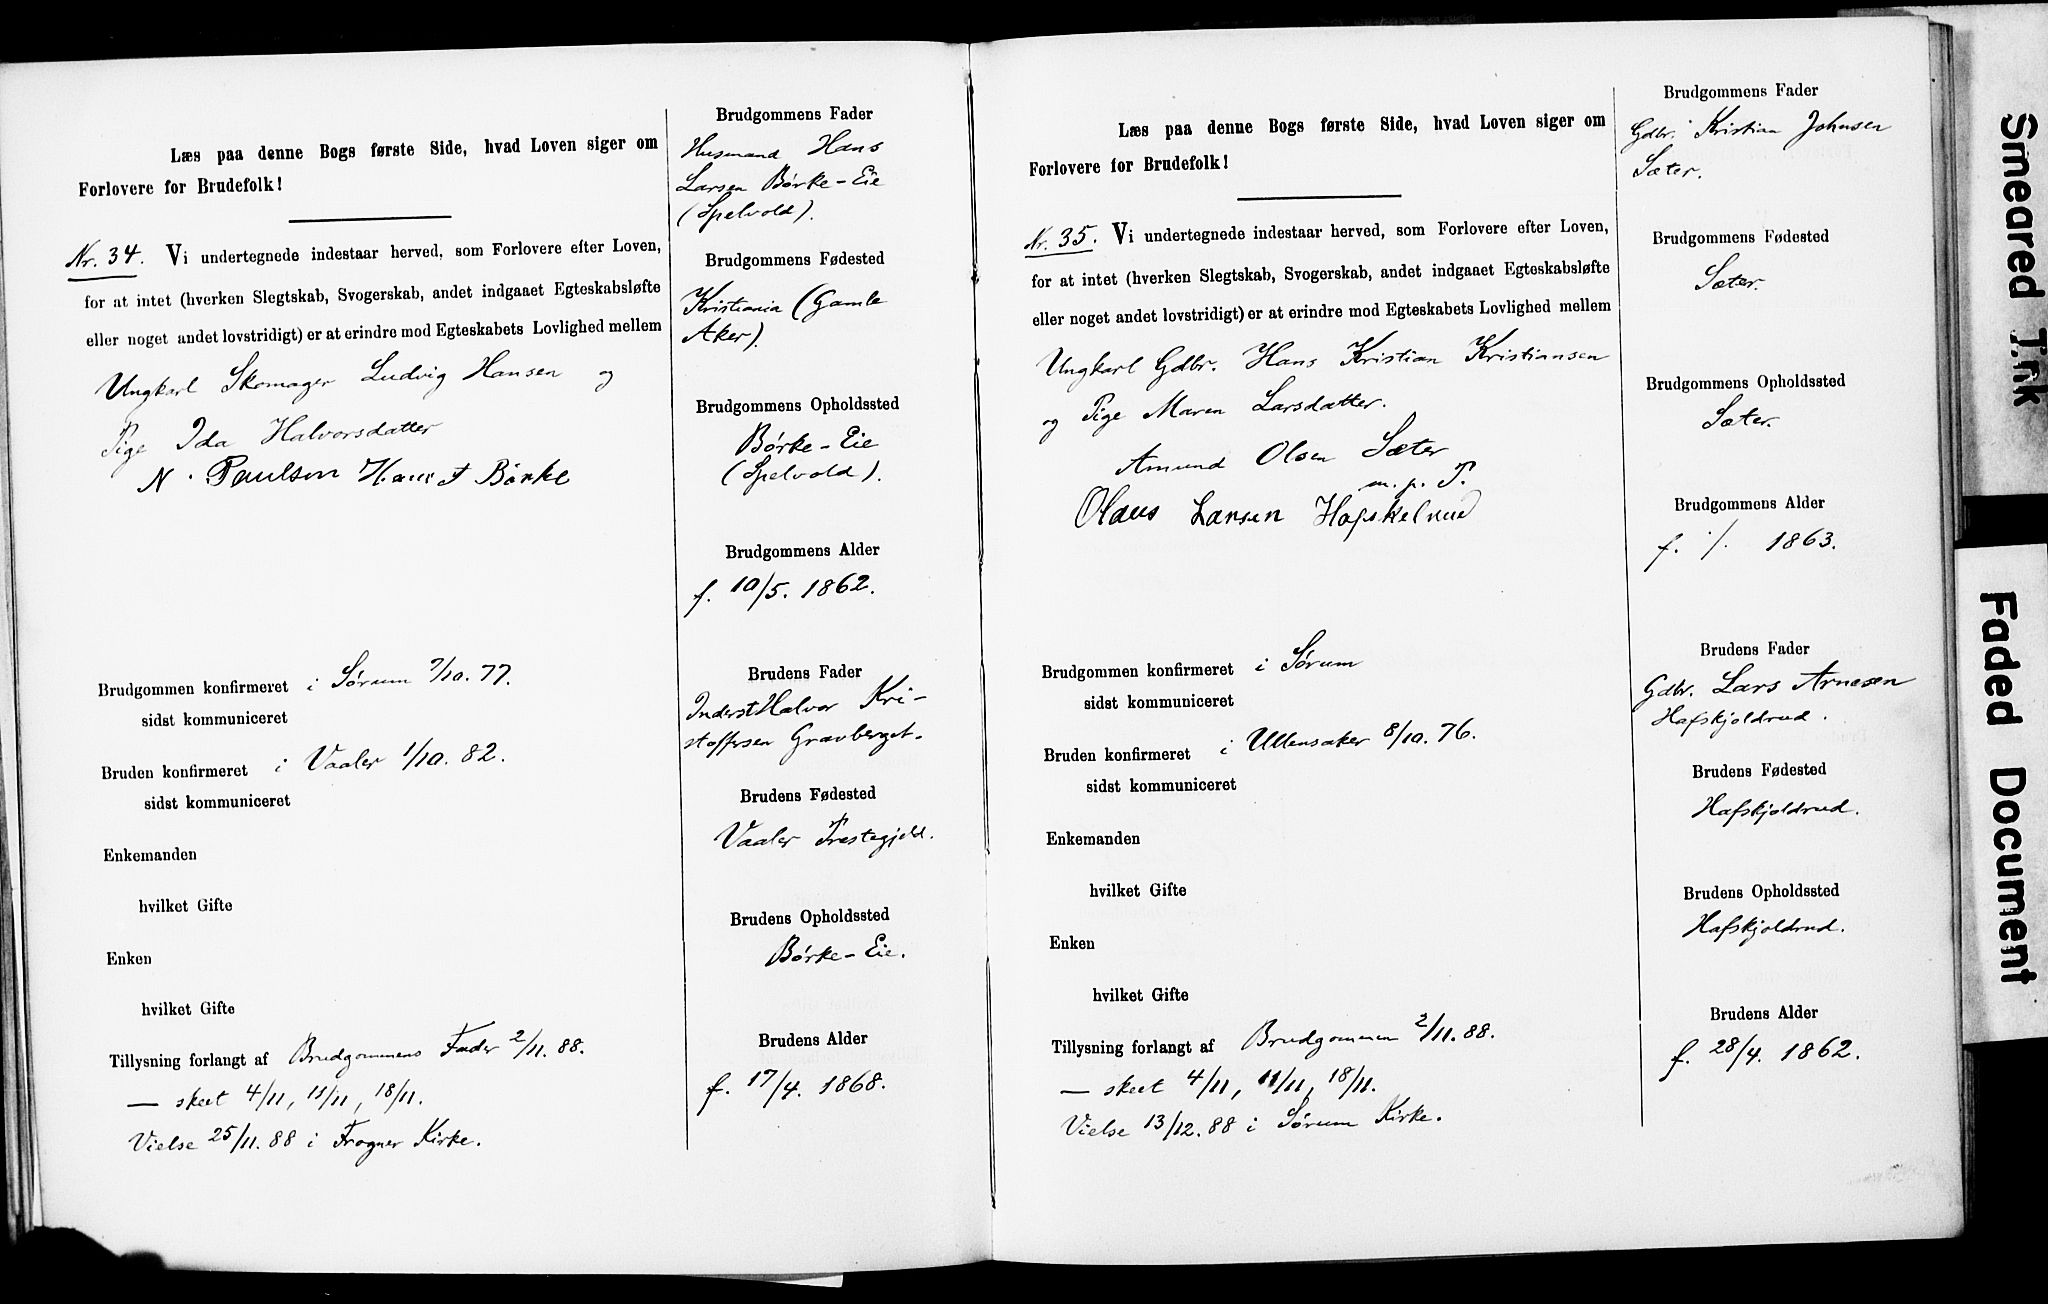 Læs paa denne Bogs første Side, hvad Loven siger om
Forlovere for Brudefolk!
Nr. 34. Vi undertegnede indestaar herved, som Forlovere efter Loven,
for at intet (hverken Slegtskab, Svogerskab, andet indgaaet Egteskabsløfte
eller noget andet lovstridigt) er at erindre mod Egteskabets Lovlighed mellem
Ungkarl Skomager Ludvig Hansen og
Pige Ida Halvorsdatter
N. Paulsen Hans Børke
Brudgommen konfirmeret i Sørum 7/10. 77.
sidst kommuniceret
Bruden konfirmeret i Vaaler 1/10. 82.
sidst kommuniceret
Enkemanden
hvilket Gifte
Enken
hvilket Gifte
Tillysning forlangt af Brudgommens Fader 2/11. 88.
— skeet 4/11, 11/11, 18/11.
Vielse 25/11. 88 i Frogner Kirke.
Brudgommens Fader
Husmand Hans
Larsen Børke-Eie
(Spelvold).
Brudgommens Fødested
Kristiania (Gamle
Aker).
Brudgommens Opholdssted
Børke-Eie
(Spelvold).
Brudgommens Alder
f. 10/5. 1862.
Brudens Fader
Inderst Halvor Kri-
stoffersen Gravberget.
Brudens Fødested
Vaaler Præstegjeld.
Brudens Opholdssted
Børke-Eie.
Brudens Alder
f. 17/4. 1868.
Læs paa denne Bogs første Side, hvad Loven siger om
Forlovere for Brudefolk!
Nr. 35. Vi undertegnede indestaar herved, som Forlovere efter Loven,
for at intet (hverken Slegtskab, Svogerskab, andet indgaaet Egteskabsløfte
eller noget andet lovstridigt) er at erindre mod Egteskabets Lovlighed mellem
Ungkarl Gdbr. Hans Kristian Kristiansen
og Pige Maren Larsdatter.
Amund Olsen Sæter
m. p. P.
Olaus Larsen Hafskelrud
Brudgommen konfirmeret i Sørum
sidst kommuniceret
Bruden konfirmeret i Ullensaker 8/10. 76.
sidst kommuniceret
Enkemanden
hvilket Gifte
Enken
hvilket Gifte
Tillysning forlangt af Brudgommen 2/11. 88.
— skeet 4/11, 11/11, 18/11.
Vielse 13/12. 88 i Sørum Kirke.
Brudgommens Fader
Gdbr. Kristian Johnsen
Sæter.
Brudgommens Fødested
Sæter.
Brudgommens Opholdssted
Sæter.
Brudgommens Alder
f. /. 1863.
Brudens Fader
Gdbr. Lars Arnesen
Hafskjoldrud.
Brudens Fødested
Hafskjoldrud.
Brudens Opholdssted
Hafskjoldrud.
Brudens Alder
f. 28/4. 1862.
Smeared
Faded Document